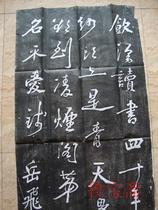 飲酒讀書四十年
紗頭上是青天男
欲到凌煙閣第
名不愛錢
岳飛